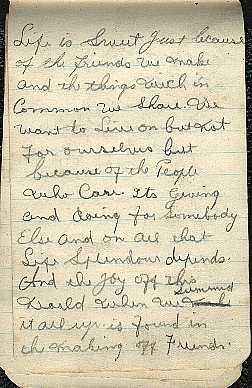 Life is Sweet Just because
of the Friends We Make
and the things Which in
Common We Share. We
want to Live on but Not
For ourselves but
because of the People
Who Care. Its Giving
and doing for Somebody
Else And on all that
Life Splendour depends.
And the Joy off this
World When We Summed
it all up. is found in
the making off Friends.